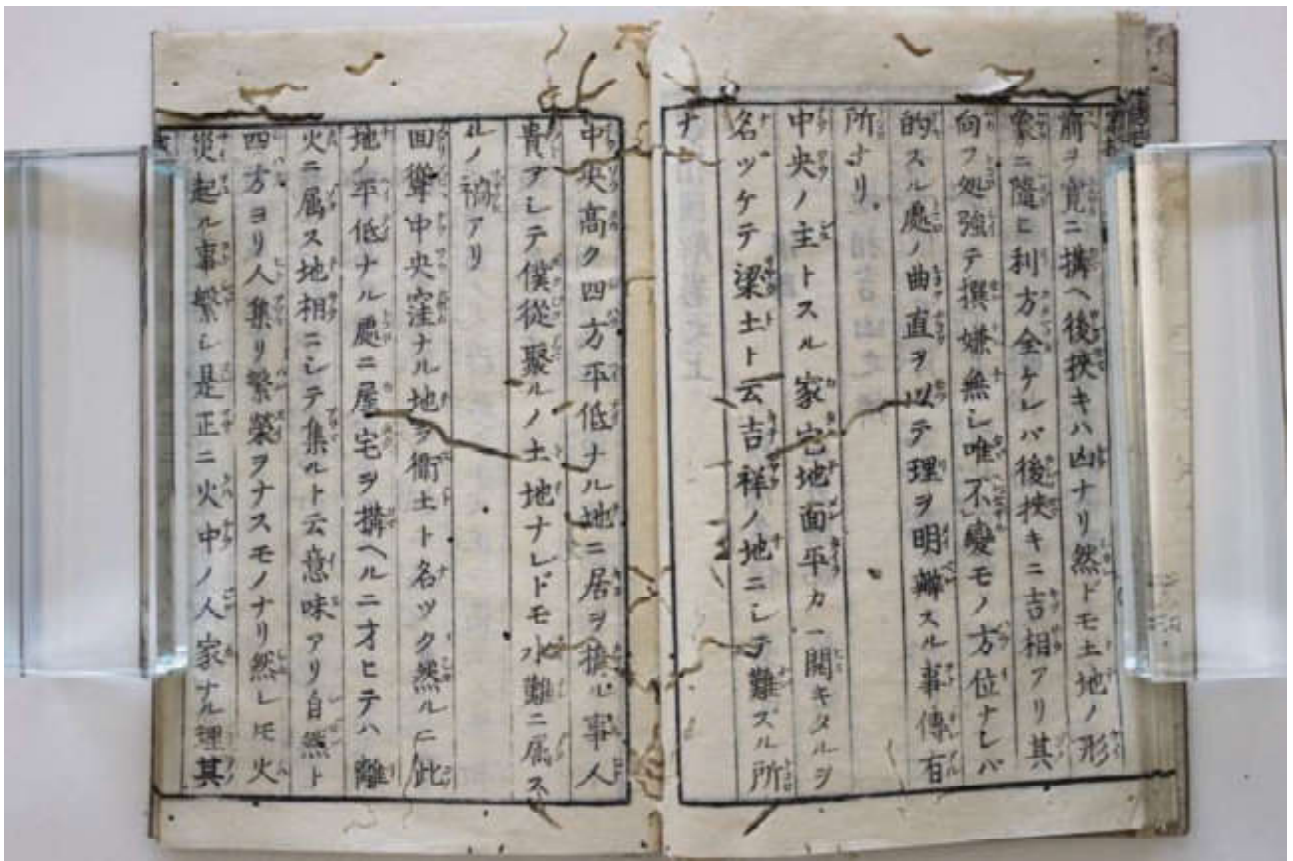 前ヲ寛ニ搆ヘ後挾キハ凶ナリ然ドモ土地ノ形
象ニ隨ヒ利方全ケレバ後挾キニ吉相アリ其
向フ処強テ撰嫌無シ唯不變モノ方位ナレバ
的スル處ノ曲直ヲ以テ理ヲ明辨スル事傳有
所ナリ。
中央ノ主トスル家宅地面平カ一開キタルヲ
名ツケテ梁土ト云吉祥ノ地ニシテ難ズル所
ナ
中央高ク四方平低ナル地ニ居ヲ搆ル事人
貴アシテ僕從聚ルノ土地ナレドモ水難ニ属ス
ルノ禍アリ
四面聳中央窪ナル地ヲ衝土ト名ツク然ルニ此
地ノ平低ナル處ニ居宅ヲ搆ヘルニオヒテハ離
火ニ属ス地相ニシテ集ルト云意味アリ自然ト
四方ヨリ人集リ繁榮ヲナスモノナリ然レ𪜈火
災起ル事繁シ是正ニ火中ノ人家ナル理其